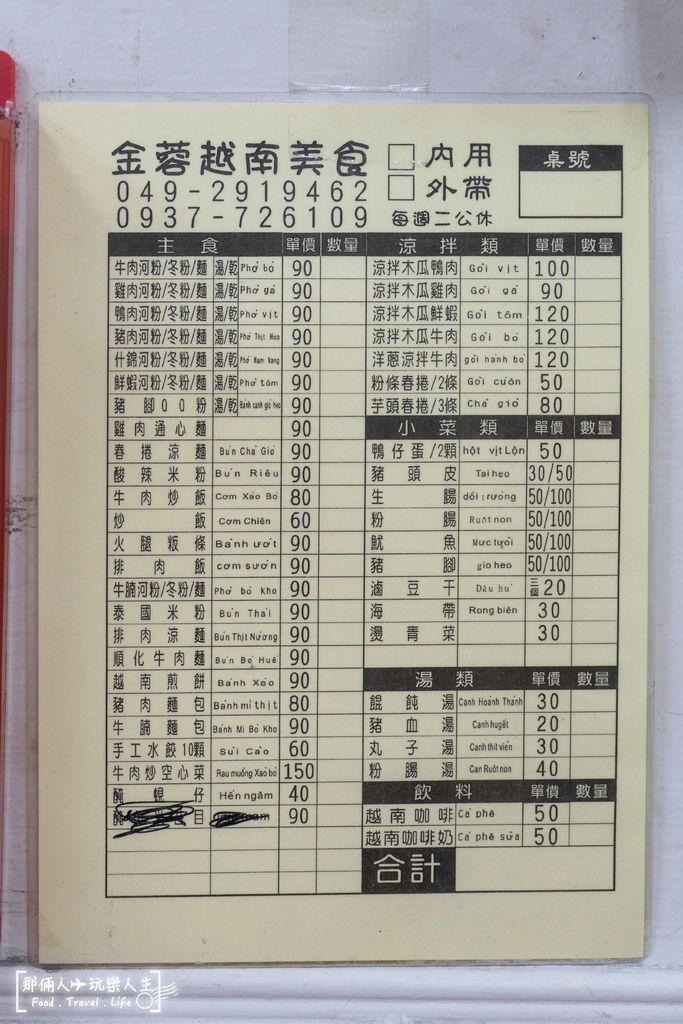 金蓉越南美食 □ 內用 桌號
049-2919462 □ 外帶
0937-726109 每週二公休
主食 單價 數量
牛肉河粉/冬粉/麵 湯/乾 Phở bò 90
雞肉河粉/冬粉/麵 湯/乾 Phở gà 90
鴨肉河粉/冬粉/麵 湯/乾 Phở vịt 90
豬肉河粉/冬粉/麵 湯/乾 Phở Thịt Heo 90
什錦河粉/冬粉/麵 湯/乾 Phở Nam Vang 90
鮮蝦河粉/冬粉/麵 湯/乾 Phở tôm 90
豬腳QQ粉 湯/乾 Bánh canh giò heo 90
雞肉通心麵 90
春捲涼麵 Bún Chả Giò 90
酸辣米粉 Bún Riêu 90
牛肉炒飯 Cơm Xáo Bò 80
炒飯 Cơm Chiên 60
火腿粄條 Bánh ướt 90
排肉飯 cơm sườn 90
牛腩河粉/冬粉/麵 Phở bò kho 90
泰國米粉 Bún Thái 90
排肉涼麵 Bún Thịt Nướng 90
順化牛肉麵 Bún Bò Huế 90
越南煎餅 Bánh Xèo 90
豬肉麵包 Bánh mì thịt 80
牛腩麵包 Bánh Mì Bò Kho 90
手工水餃10顆 Sủi Cảo 60
牛肉炒空心菜 Rau muống Xào bò 150
醃蜆仔 Hến ngâm 40
目 90
涼拌類 單價 數量
涼拌木瓜鴨肉 Gỏi vịt 100
涼拌木瓜雞肉 Gỏi gà 90
涼拌木瓜鮮蝦 Gỏi tôm 120
涼拌木瓜牛肉 Gỏi bò 120
洋蔥涼拌牛肉 gỏi hành bò 120
粉條春捲/2條 Gỏi cuốn 50
芋頭春捲/3條 Chả giò 80
小菜類 單價 數量
鴨仔蛋/2顆 hột vịt Lộn 50
豬頭皮 Tai heo 30/50
生腸 dồi trường 50/100
粉腸 Ruột non 50/100
魷魚 Mực tươi 50/100
豬腳 giò heo 50/100
滷豆干 Đậu hủ 三個20
海帶 Rong biên 30
燙青菜 30
湯類 單價 數量
餛飩湯 Canh Hoành Thánh 30
豬血湯 Canh huyết 20
丸子湯 Canh thịt viên 30
粉腸湯 Can Ruột non 40
飲料 單價 數量
越南咖啡 Cà phê 50
越南咖啡奶 Cà phê sữa 50
合計
那倆人玩樂人生
Food . Travel . Life